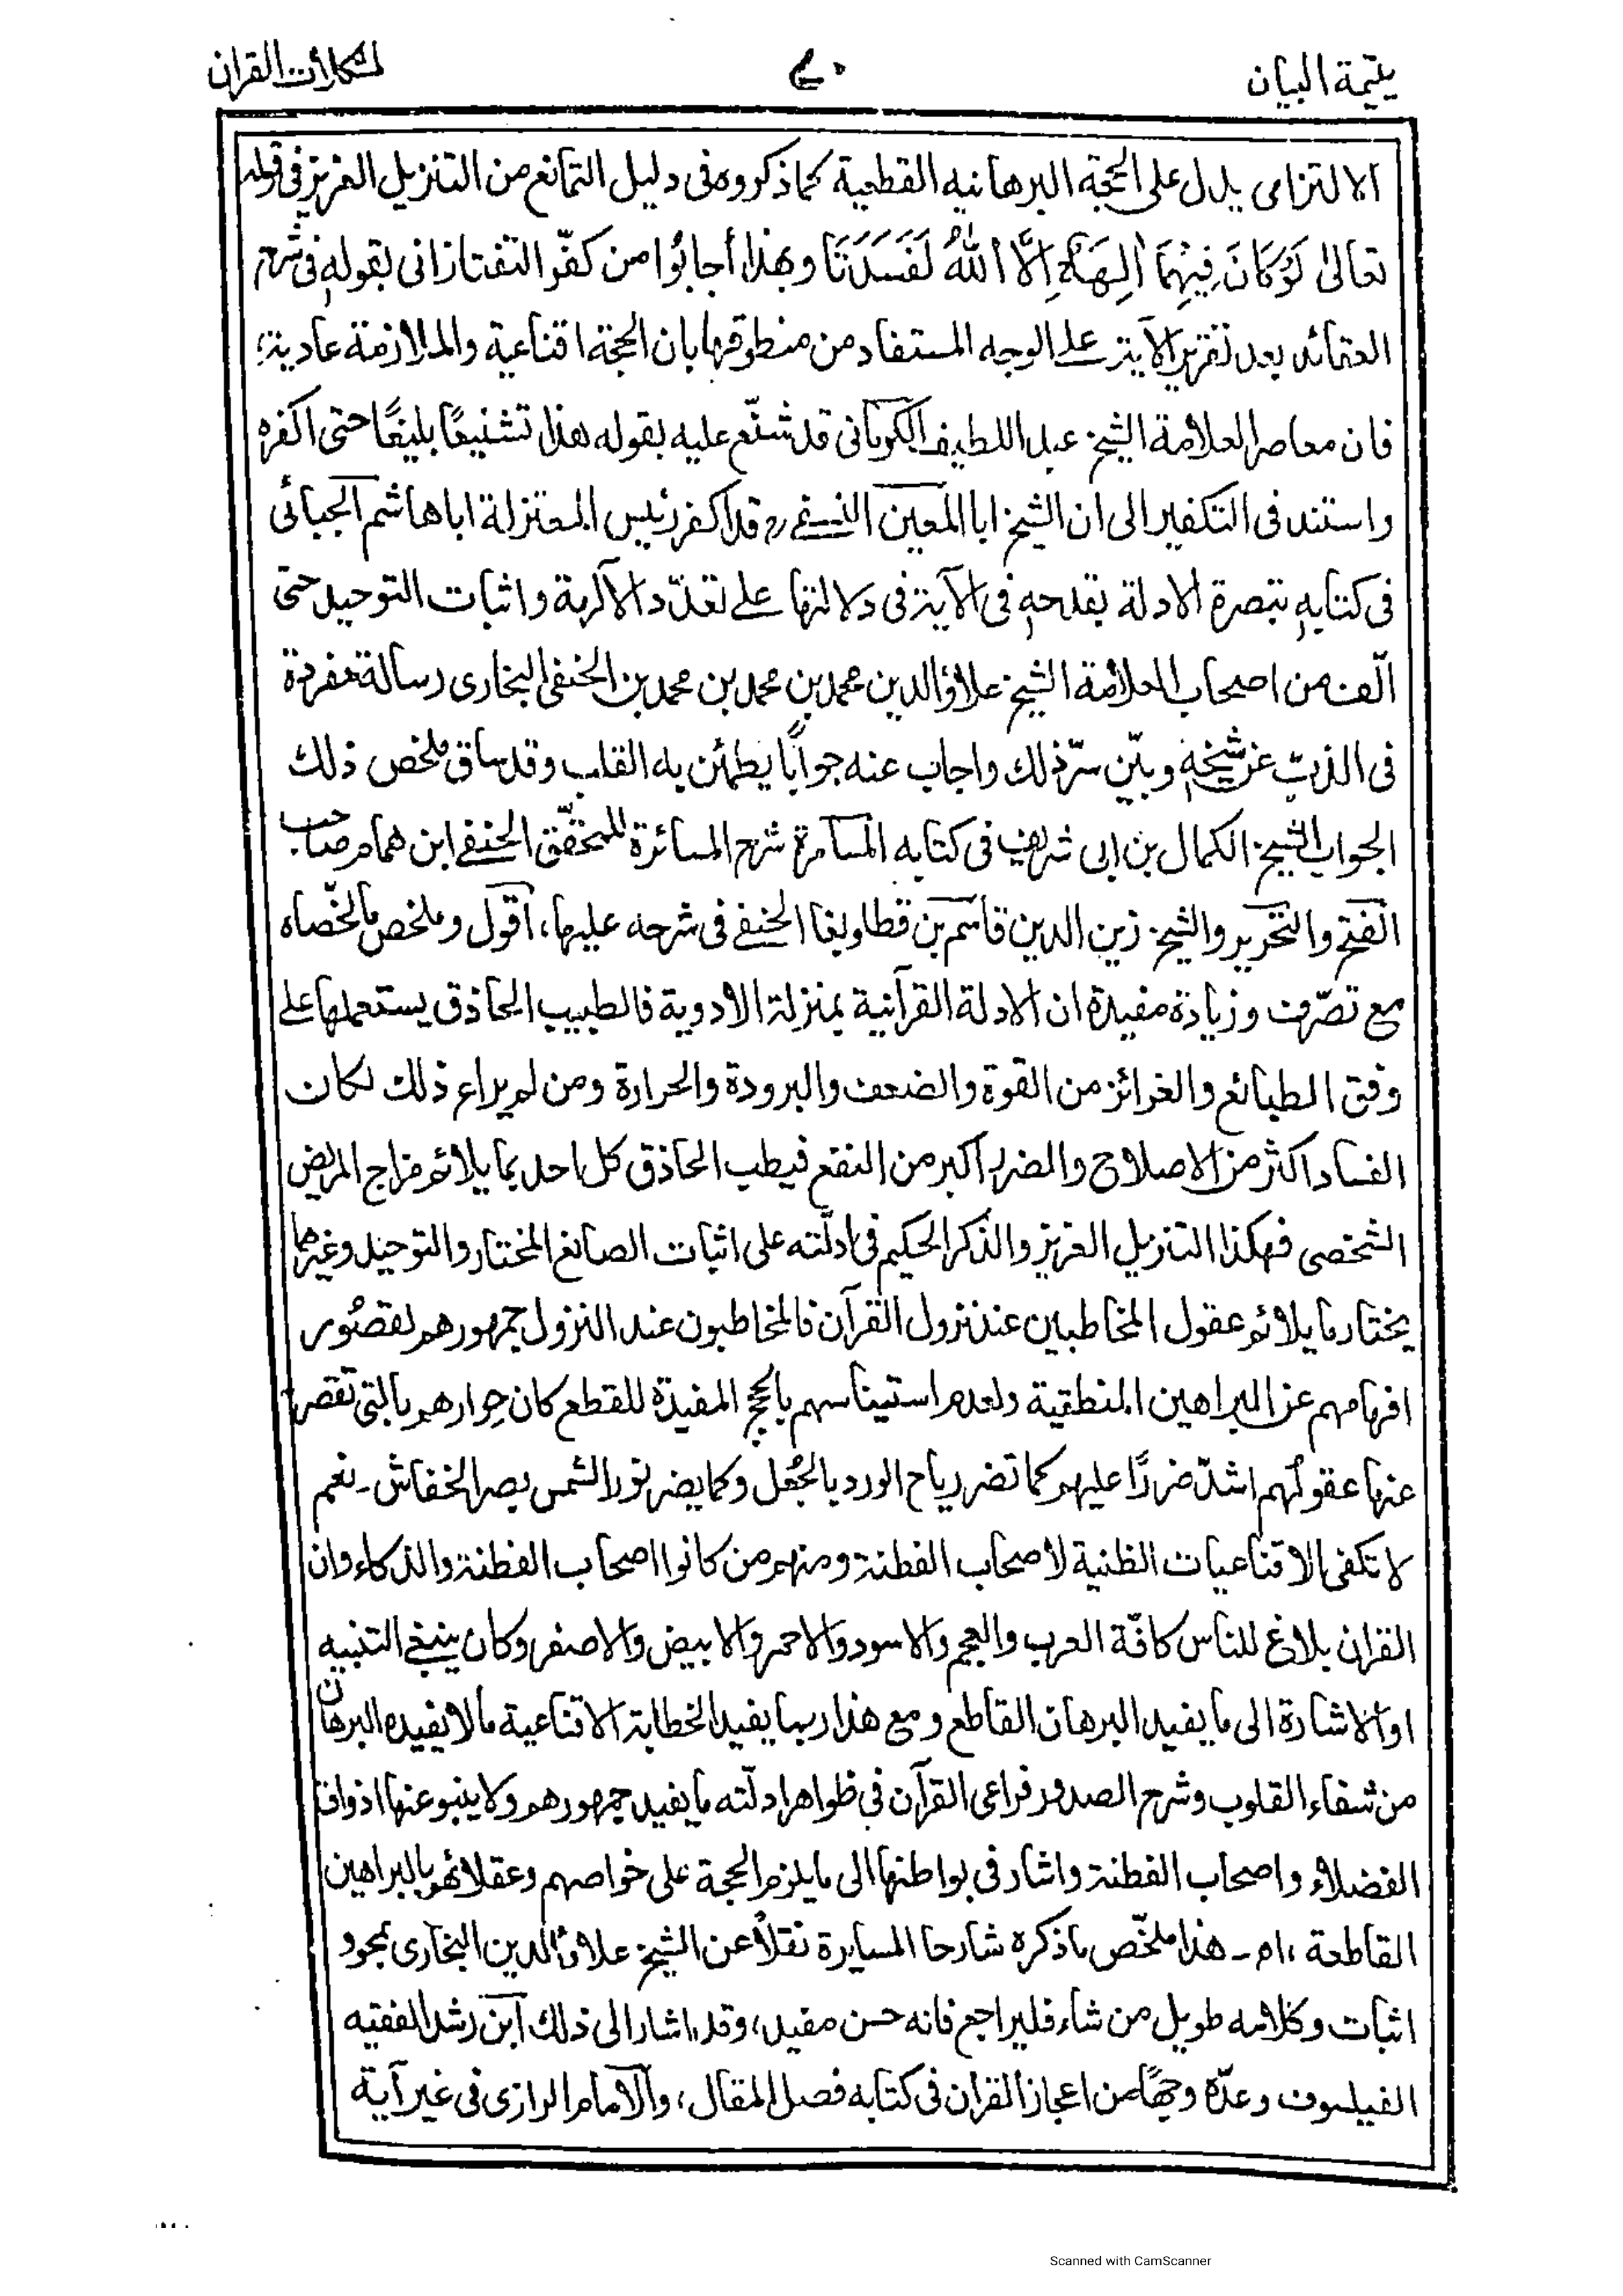 يتيمة البيان
٤٠
لمشكلات القران
الالتزامى يدل على الحجة البرهانيه القطعية كما ذكروه فى دليل التمانع من التنزيل العزيز فى قوله
تعالىٰ لَوْكَانَ فِيْهِمَا اٰلِهَةٌ اِلَّا اللهُ لَفَسَدَتَا وبهذا أجابُوا من كفّر التفتازانى بقولهٖ فى شرح
العقائد بعد تقرير الآية على الوجه المستفاد من منطوقها بان الحجة اقناعية والملازمة عادية،
فان معاصر العلامة الشيخ عبد اللطيف الكرمانى قد شنّع عليه بقوله هذا تشنيعًا بليغًا حتى اكفره
واستند فى التكفير الى ان الشيخ ابا المعين النسفى رح قد اكفر رئيس المعتزلة ابا هاشم الجبائى
فى كتابهٖ تبصرة الادلة بقدحهٖ فى الآية فى دلالتها على تعدّد الآلهة واثبات التوحيد حتى
الّف من اصحاب العلامة الشيخ علاؤ الدين محمد بن محمد بن محمد بن الحنفى البخارى رسالة مفردة
فى الذبّ عن شيخهٖ وبيّن سرّ ذلك واجاب عنه جوابًا يطمئن به القلب وقد ساق ملخص ذلك
الجواب الشيخ الكمال بن ابى شريف فى كتابه المسامرة شرح المسائرة للمحقّق الحنفى ابن همام صاحب
الفتح والتحرير والشيخ زين الدين قاسم بن قطلوبغا الحنفى فى شرحه عليها، اقول وملخص مالخّصاه
مع تصرّف وزيادة مفيدة ان الادلة القرآنية بمنزلة الادوية فالطبيب الحاذق يستعملها على
وفق الطبائع والغرائز من القوة والضعف والبرودة والحرارة ومن لم يراع ذلك لكان
الفساد اكثر من الاصلاح والضرر اكبر من النفع فيطب الحاذق كل احد بما يلائم مزاج المريض
الشخصى فهكذا التنزيل العزيز والذكر الحكيم فى ادلّته على اثبات الصانع المختار والتوحيد وغيرهما
يختار ما يلائم عقول المخاطبين عند نزول القرآن فالمخاطبون عند النزول جمهورهم لقصُور
افهامهم عن البراهين المنطقية ولعدم استيناسهم بالحجج المفيدة للقطع كان حِوارهم بالتى تقصر
عنها عقولُهم اشدّ ضررًا عليهم كما تضر رياح الورد بالجُعل وكما يضر نور الشمس بصر الخفاش - نعم
لا تكفى الاقناعيات الظنية لأصحاب الفطنة ومنهم من كانوا اصحاب الفطنة والذكاء وان
القران بلاغ للناس كافّة العرب والعجم والاسود والاحمر والابيض والاصفر وكان ينبغى التنبيه
او الاشارة الى ما يفيد البرهان القاطع ومع هذا ربما يفيد الخطابة الاقناعية مالا يفيده البرهان
من شفاء القلوب وشرح الصدور فراعى القرآن فى ظواهر ادلّته ما يفيد جمهورهم ولا ينبو عنها اذواق
الفضلاء واصحاب الفطنة واشار فى بواطنها الى ما يلزم الحجة على خواصهم وعقلائهم بالبراهين
القاطعة ،اه - هذا ملخّص ماذكره شارحا المسايرة نقلًا عن الشيخ علاؤ الدين البخارى بمحو و
اثبات وكلامه طويل من شاء فليراجع فانه حسن مفيد، وقد اشار الى ذلك ابن رشد الفقيه
الفيلسوف وعدّه وجهًا من اعجاز القران فى كتابه فصل المقال، والامام الرازى فى غير آية
Scanned with CamScanner